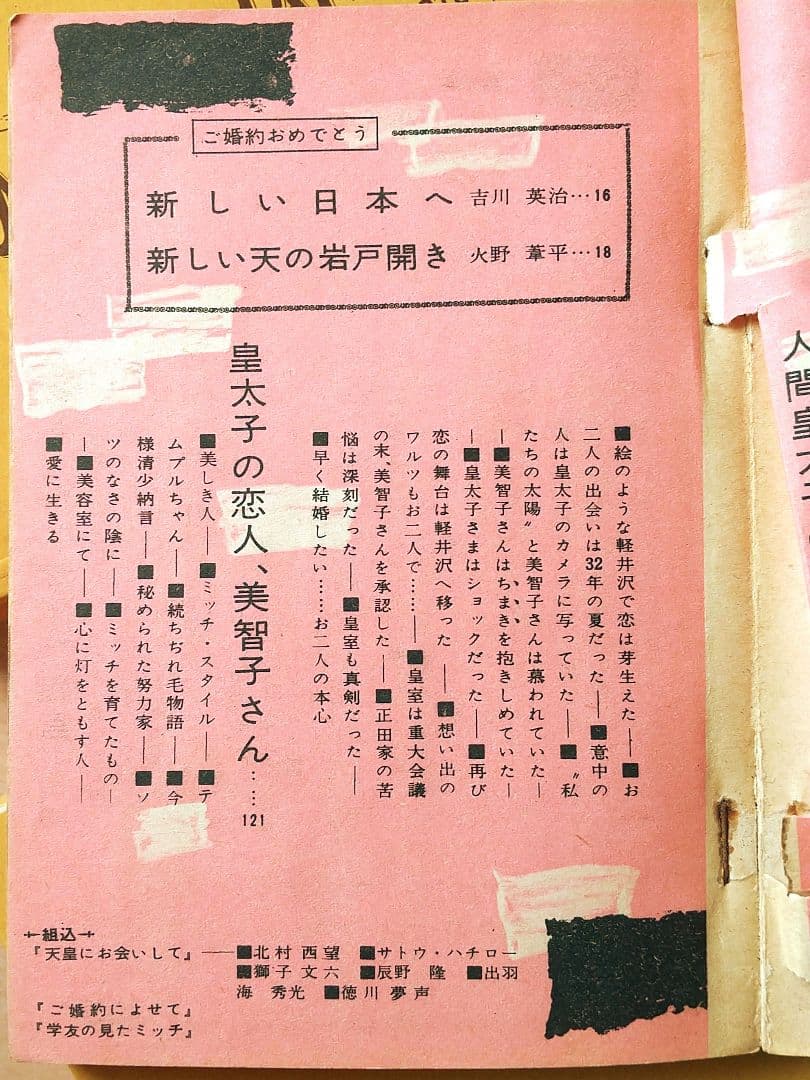 ご婚約おめでとう
新しい日本へ 吉川 英治…16
新しい天の岩戸開き 火野 葦平…18
■絵のような軽井沢で恋は芽生えた――■お
二人の出会いは32年の夏だった――■意中の
人は皇太子のカメラに写っていた――■〝私
たちの太陽〟と美智子さんは慕われていた―
―■美智子さんはちまきを抱きしめていた―
―■皇太子さまはショックだった――■再び
恋の舞台は軽井沢へ移った――■想い出の
ワルツもお二人で……――■皇室は重大会議
の末、美智子さんを承認した――■正田家の苦
悩は深刻だった――■皇室も真剣だった――
■早く結婚したい……お二人の本心
皇太子の恋人、美智子さん……121
■美しき人――■ミッチ・スタイル――■テ
ムプルちゃん――■続ちぢれ毛物語――■今
様清少納言――■秘められた努力家――■ソ
ツのなさの陰に――■ミッチを育てたもの―
―■美容室にて――■心に灯をともす人――
■愛に生きる
組込
『天皇にお会いして』――■北村 西望 ■サトウ・ハチロー
■獅子 文六 ■辰野 隆 ■出羽
海 秀光 ■徳川 夢声
『ご婚約によせて』
『学友の見たミッチ』
人間皇太子